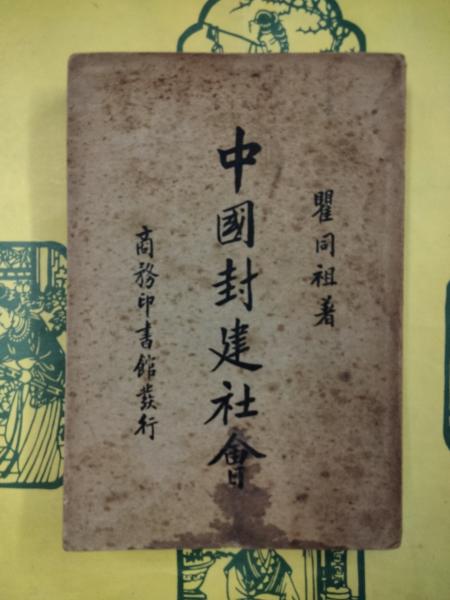 瞿同祖著
中國封建社會
商務印書館發行